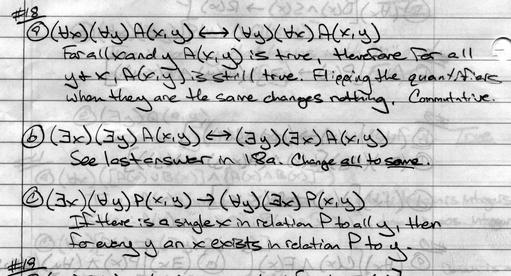 #18
ⓐ (∀x)(∀y) A(x,y) ⟷ (∀y)(∀x) A(x,y)
For all x and y A(x,y) is true, therefore for all
y + x, A(x,y) is still true. Flipping the quantifiers
when they are the same changes nothing. Commutative.
ⓑ (∃x)(∃y) A(x,y) ⟷ (∃y)(∃x) A(x,y)
See last answer in 18a. Change all to some.
(∃x)(∀y) P(x,y) → (∀y)(∃x) P(x,y)
If there is a single x in relation P to all y, then
for every y an x exists in relation P to y.
#19